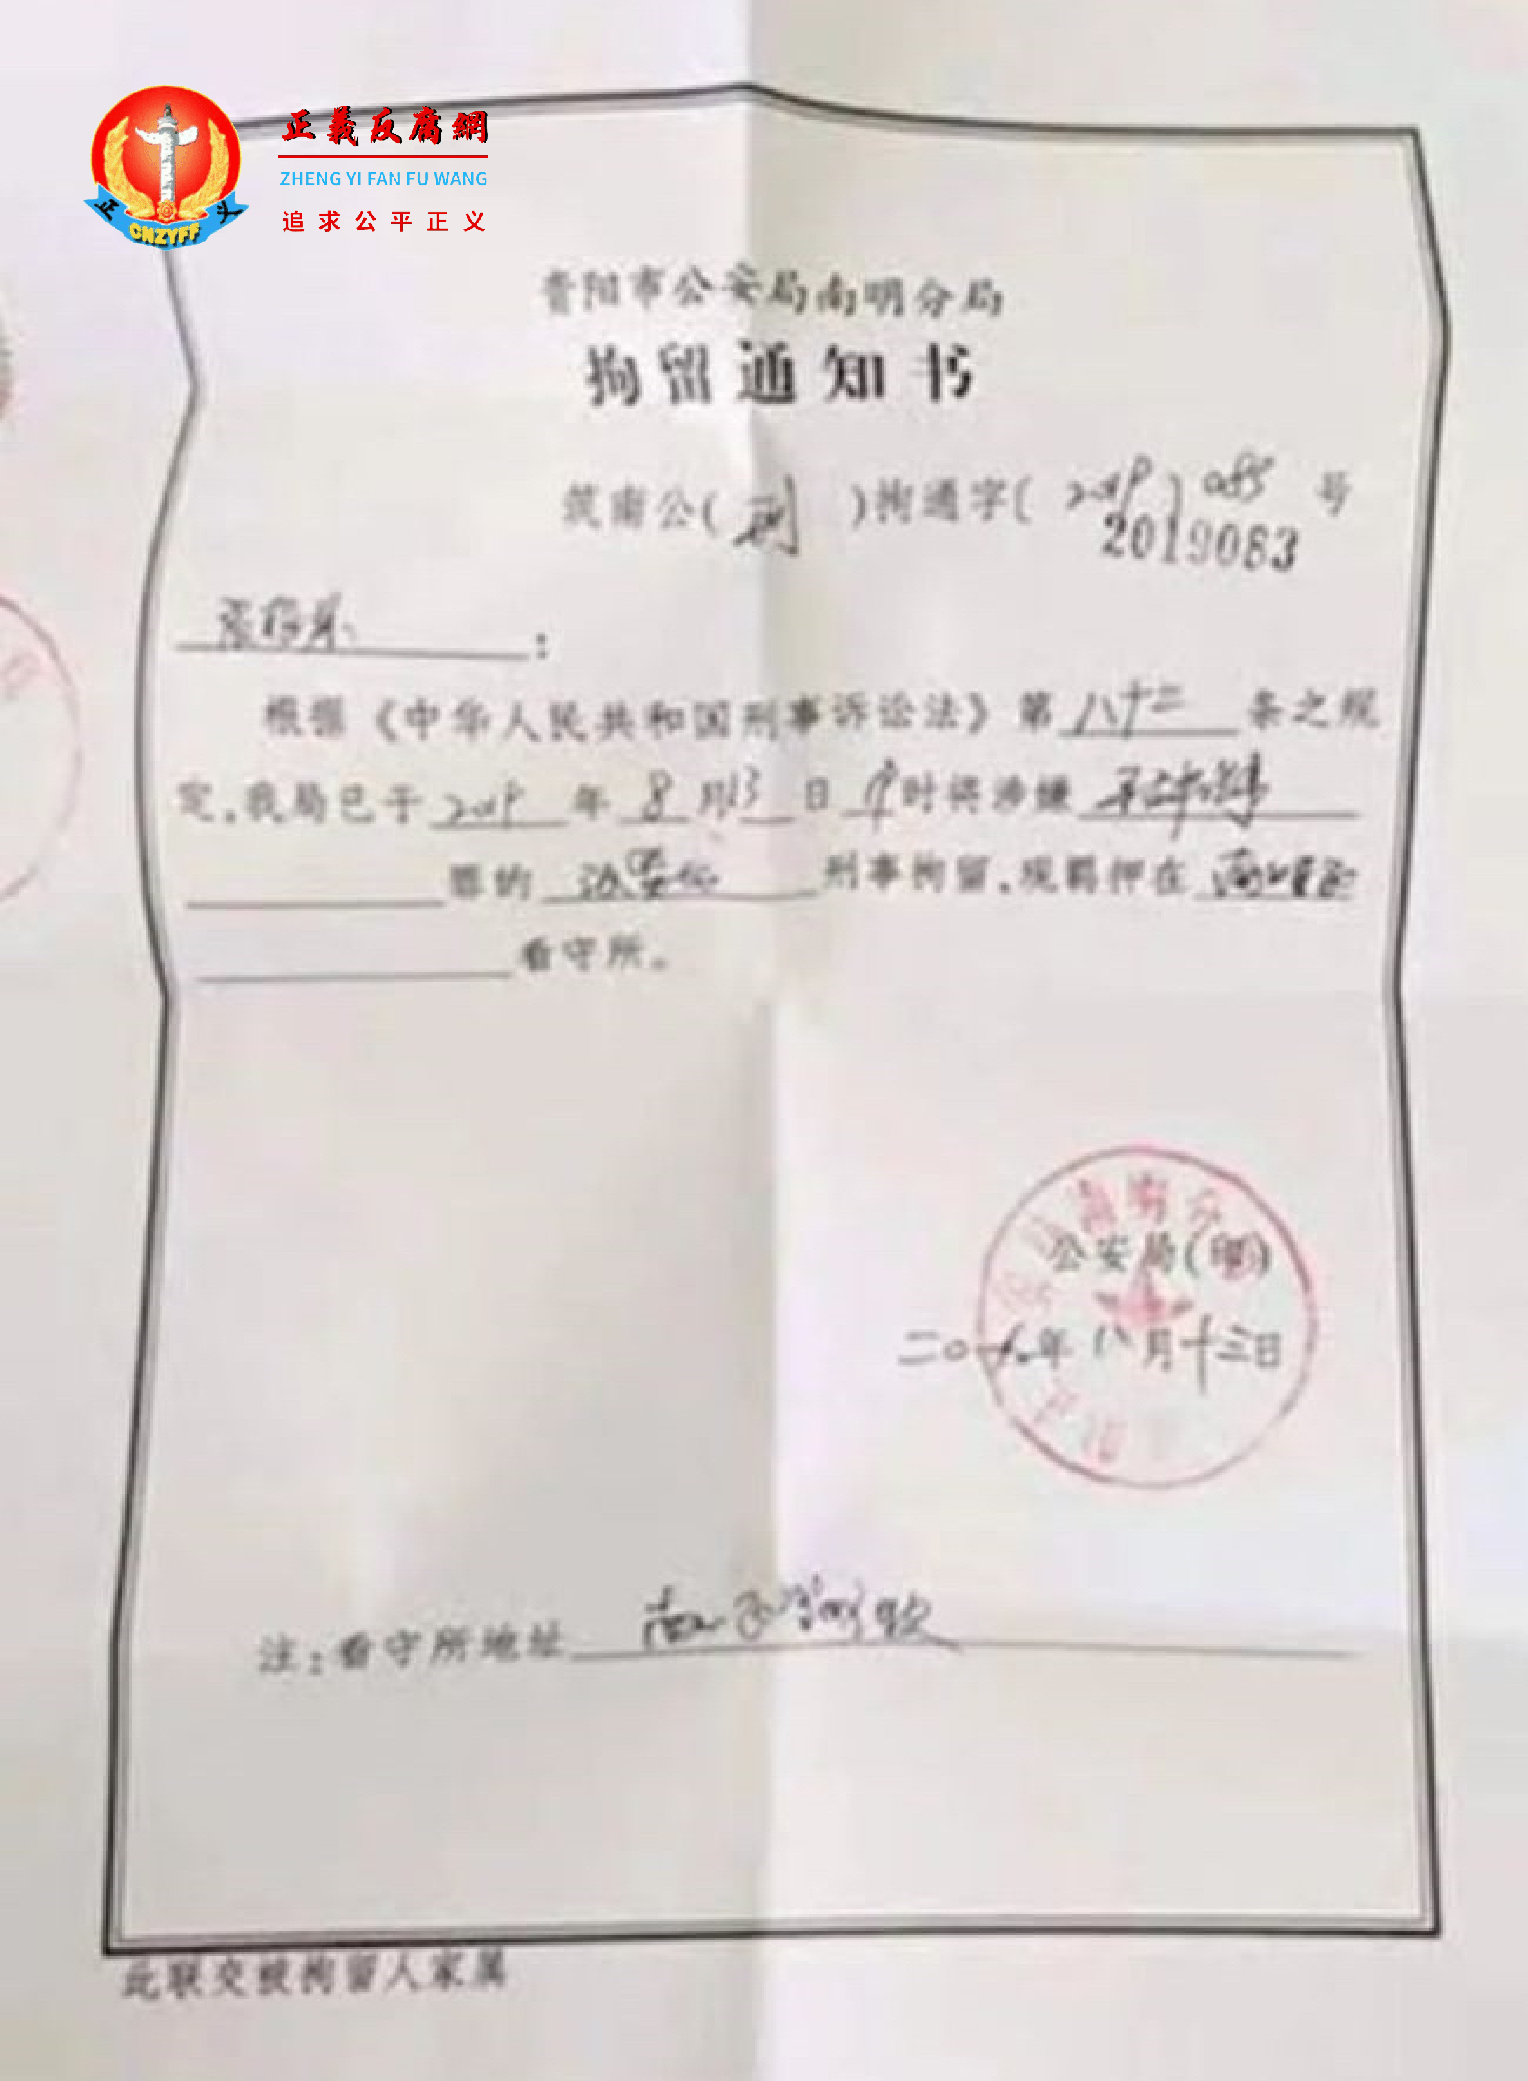 正義反腐網
ZHENG YI FAN FU WANG
追求公平正义
正 义
CNZYFF
贵阳市公安局南明分局
拘留通知书
筑南公(刑)拘通字(2019)085号
2019083
张
根据《中华人民共和国刑事诉讼法》第八十二条之规
定,我局已于2019年8月13日 时将涉嫌
罪的 刑事拘留,现羁押在
看守所。
公安局(印)
二〇一九年八月十三日
注:看守所地址
此联交被拘留人家属